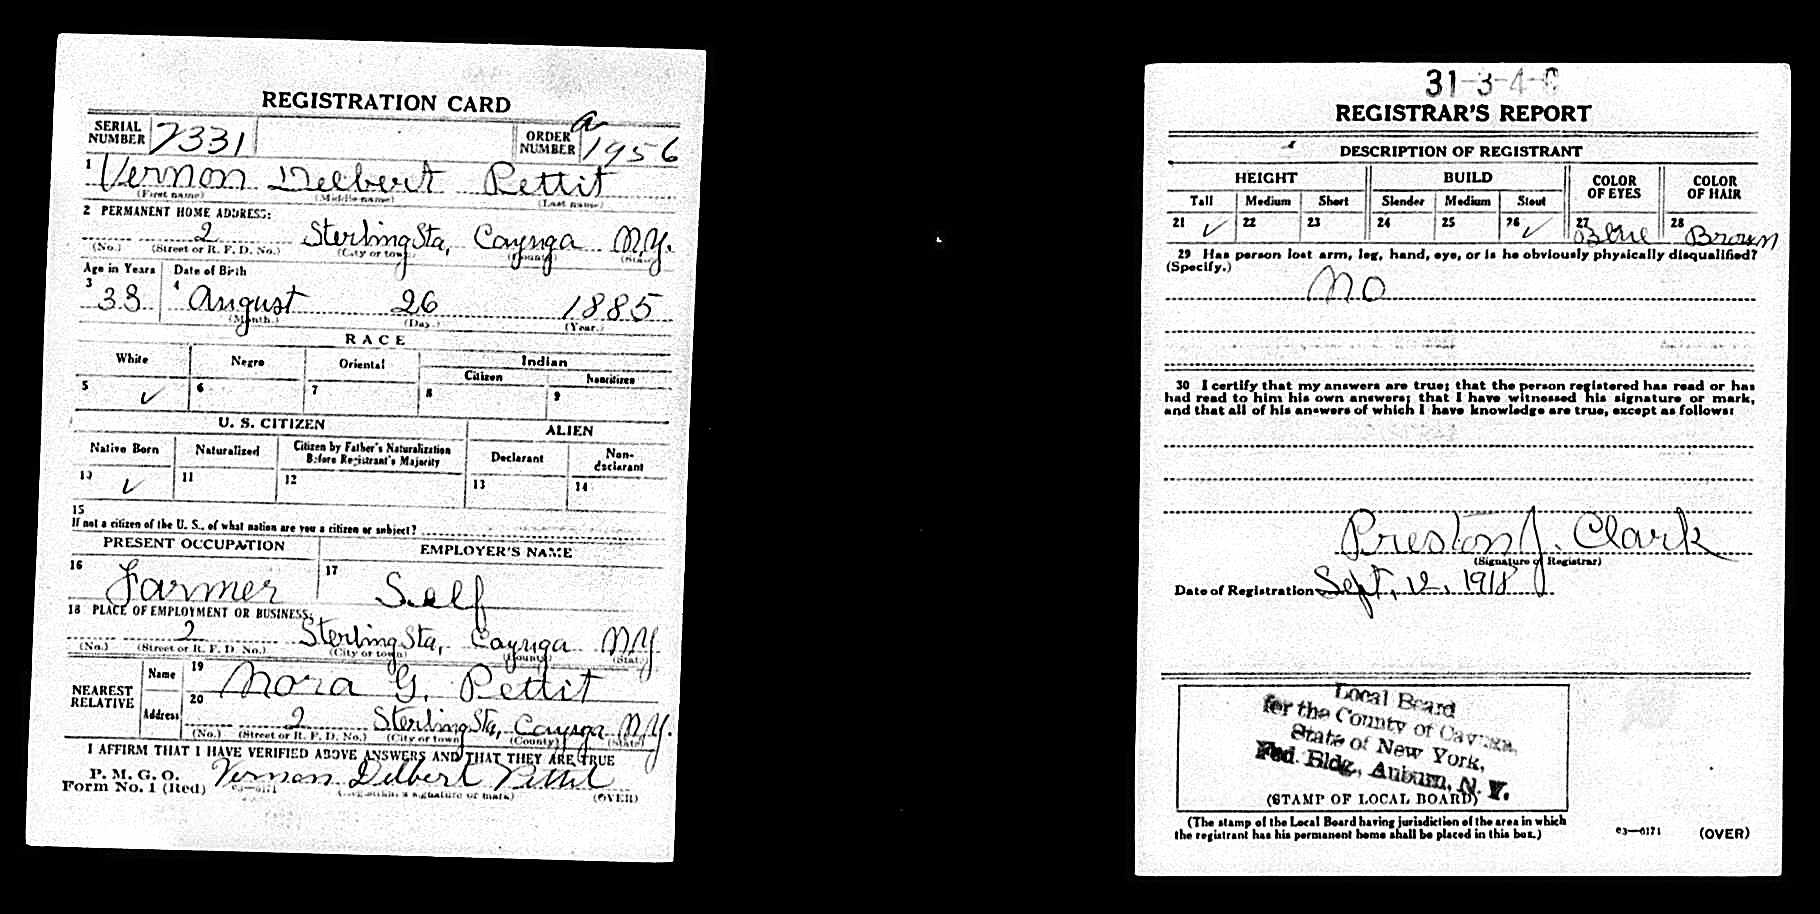 REGISTRATION CARD
SERIAL NUMBER 7331 ORDER NUMBER a 1956
1 Vernon Delbert Pettit
(First name) (Middle name) (Last name)
2 PERMANENT HOME ADDRESS:
2 Sterling Sta, Cayuga N.Y.
(No.) (Street or R. F. D. No.) (City or town) (County) (State)
Age in Years Date of Birth
3 33 4 August 26 1885
(Month.) (Day.) (Year.)
RACE
White Negro Oriental Indian
Citizen Noncitizen
5 ✓ 6 7 8 9
U. S. CITIZEN ALIEN
Native Born Naturalized Citizen by Father's Naturalization Before Registrant's Majority Declarant Non-declarant
10 ✓ 11 12 13 14
15
If not a citizen of the U. S., of what nation are you a citizen or subject?
PRESENT OCCUPATION EMPLOYER'S NAME
16 Farmer 17 Self
18 PLACE OF EMPLOYMENT OR BUSINESS:
2 Sterling Sta, Cayuga N.Y.
(No.) (Street or R. F. D. No.) (City or town) (County) (State)
NEAREST RELATIVE Name 19 Nora G. Pettit
Address 20 2 Sterling Sta, Cayuga N.Y.
(No.) (Street or R. F. D. No.) (City or town) (County) (State)
I AFFIRM THAT I HAVE VERIFIED ABOVE ANSWERS AND THAT THEY ARE TRUE
P. M. G. O.
Form No. 1 (Red) Vernon Delbert Pettit
03—6171 (Registrant's signature or mark) (OVER)
31-3-4-C
REGISTRAR'S REPORT
DESCRIPTION OF REGISTRANT
HEIGHT BUILD COLOR OF EYES COLOR OF HAIR
Tall Medium Short Slender Medium Stout
21 ✓ 22 23 24 25 26 ✓ 27 Blue 28 Brown
29 Has person lost arm, leg, hand, eye, or is he obviously physically disqualified?
(Specify.) No
30 I certify that my answers are true; that the person registered has read or has
had read to him his own answers; that I have witnessed his signature or mark,
and that all of his answers of which I have knowledge are true, except as follows:
Preston J. Clark
(Signature of Registrar)
Date of Registration Sept, 12, 1918
Local Board
for the County of Cayuga,
State of New York,
Fed. Bldg., Auburn, N. Y.
(STAMP OF LOCAL BOARD)
(The stamp of the Local Board having jurisdiction of the area in which
the registrant has his permanent home shall be placed in this box.)
03—6171 (OVER)